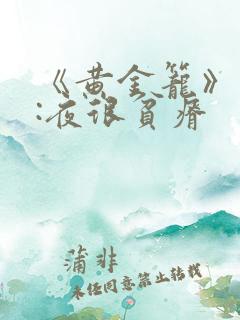 《黄金笼》
:夜很负瘠
蒲非
未经同意禁止转载